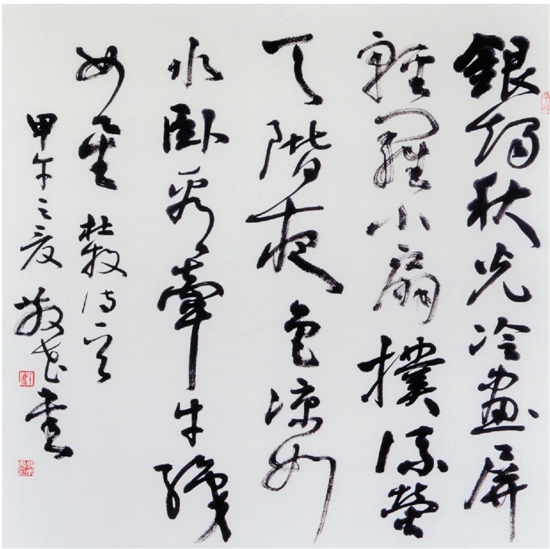 銀燭秋光冷畫屏
輕羅小扇撲流螢
天階夜色涼如
水臥看牽牛織
女星 杜牧诗
甲午之夏